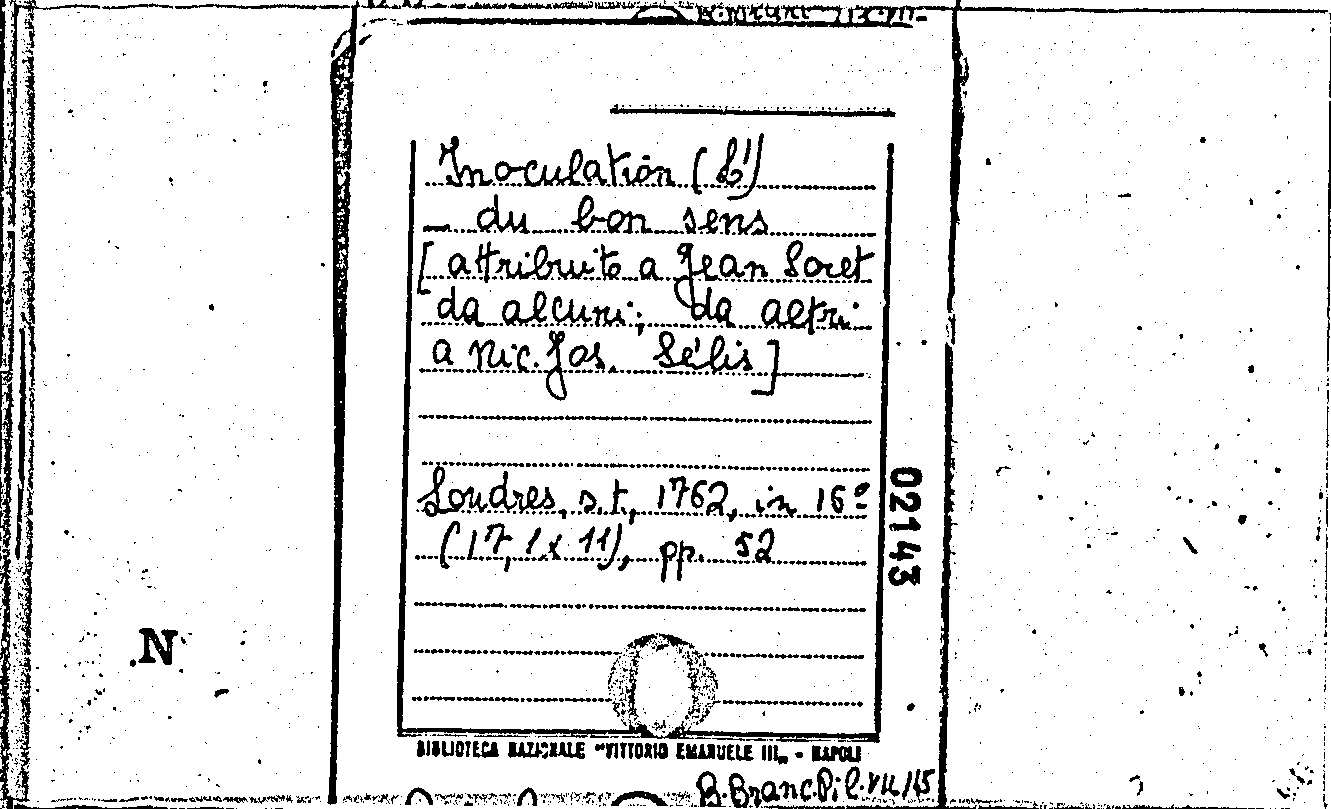 Inoculation (L')
_ du bon sens
[attribuito a Jean Soret
da alcuni; da altri
a Nic. Jos. Sélis]
Londres, s.t., 1762, in 16º
(17,1 x 11), pp. 52
02143
N
BIBLIOTECA NAZIONALE "VITTORIO EMANUELE III" - NAPOLI
B. Branc.